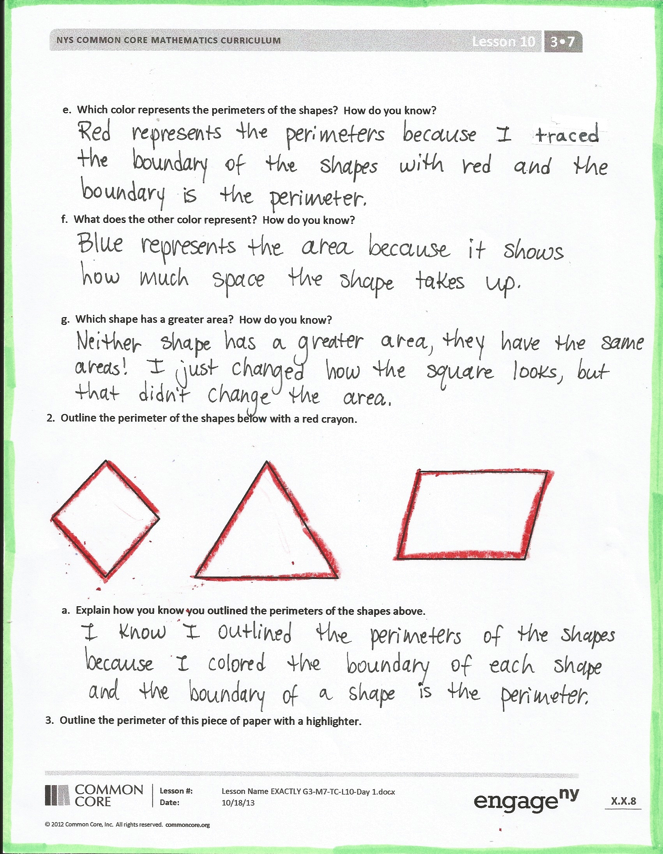 NYS COMMON CORE MATHEMATICS CURRICULUM
Lesson 10
3•7
e. Which color represents the perimeters of the shapes? How do you know?
Red represents the perimeters because I traced
the boundary of the shapes with red and the
boundary is the perimeter.
f. What does the other color represent? How do you know?
Blue represents the area because it shows
how much space the shape takes up.
g. Which shape has a greater area? How do you know?
Neither shape has a greater area, they have the same
areas! I just changed how the square looks, but
that didn't change the area.
2. Outline the perimeter of the shapes below with a red crayon.
a. Explain how you know you outlined the perimeters of the shapes above.
I know I outlined the perimeters of the shapes
because I colored the boundary of each shape
and the boundary of a shape is the perimeter.
3. Outline the perimeter of this piece of paper with a highlighter.
COMMON
CORE
Lesson #: Lesson Name EXACTLY G3-M7-TC-L10-Day 1.docx
Date: 10/18/13
engage ny
X.X.8
© 2012 Common Core, Inc. All rights reserved. commoncore.org